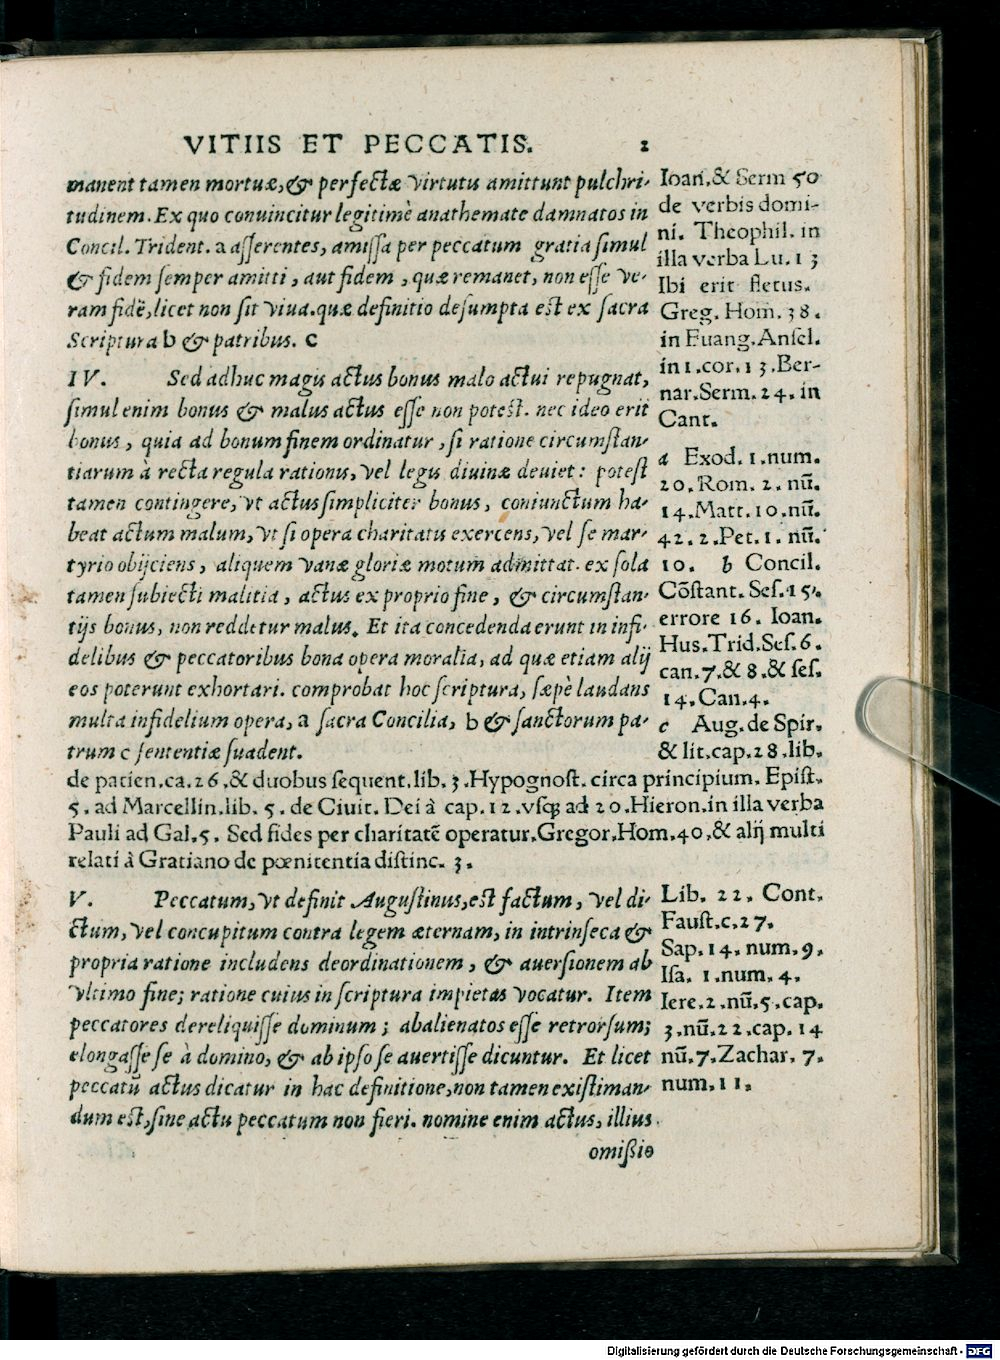 VITIIS ET PECCATIS. 2
manent tamen mortuæ, & perfectæ virtutis amittunt pulchri-
tudinem. Ex quo conuincitur legitimè anathemate damnatos in
Concil. Trident. a asserentes, amissa per peccatum gratia simul
& fidem semper amitti, aut fidem, quæ remanet, non esse ve-
ram fidē, licet non sit viua. quæ definitio desumpta est ex sacra
Scriptura b & patribus. c
IV. Sed adhuc magis actus bonus malo actui repugnat,
simul enim bonus & malus actus esse non potest. nec ideo erit
bonus, quia ad bonum finem ordinatur, si ratione circumstan-
tiarum à recta regula rationis, vel legis diuinæ deuiet: potest
tamen contingere, vt actus simpliciter bonus, coniunctum ha-
beat actum malum, vt si opera charitatis exercens, vel se mar-
tyrio obijciens, aliquem vanæ gloriæ motum admittat. ex sola
tamen subiecti malitia, actus ex proprio fine, & circumstan-
tijs bonus, non reddetur malus. Et ita concedenda erunt in infi-
delibus & peccatoribus bona opera moralia, ad quæ etiam alij
eos poterunt exhortari. comprobat hoc scriptura, sæpè laudans
multa infidelium opera, a sacra Concilia, b & sanctorum pa-
trum c sententiæ suadent.
Ioan. & Serm 50
de verbis domi-
ni. Theophil. in
illa verba Lu. 13
Ibi erit fletus.
Greg. Hom. 38.
in Euang. Ansel.
in 1. cor. 13. Ber-
nar. Serm. 24. in
Cant.
a Exod. 1. num.
20. Rom. 2. nū.
14. Matt. 10. nū.
42. 2. Pet. 1. nū.
10. b Concil.
Cōstant. Ses. 15.
errore 16. Ioan.
Hus. Trid. Ses. 6.
can. 7. & 8. & ses.
14. Can. 4.
c Aug. de Spir.
& lit. cap. 28. lib.
de patien. ca. 26. & duobus sequent. lib. 3. Hypognost. circa principium. Epist.
5. ad Marcellin. lib. 5. de Ciuit. Dei à cap. 12. vsq; ad 20. Hieron. in illa verba
Pauli ad Gal. 5. Sed fides per charitatē operatur. Gregor. Hom. 40. & alij multi
relati à Gratiano de pœnitentia distinc. 3.
V. Peccatum, vt definit Augustinus, est factum, vel di-
ctum, vel concupitum contra legem æternam, in intrinseca &
propria ratione includens deordinationem, & auersionem ab
vltimo fine; ratione cuius in scriptura impietas vocatur. Item
peccatores dereliquisse dominum; abalienatos esse retrorsum;
elongasse se à domino, & ab ipso se auertisse dicuntur. Et licet
peccatū actus dicatur in hac definitione, non tamen existiman-
dum est, sine actu peccatum non fieri. nomine enim actus, illius
omißio
Lib. 22. Cont.
Faust. c. 27.
Sap. 14. num. 9.
Isa. 1. num. 4.
Iere. 2. nū. 5. cap.
3. nū. 22. cap. 14
nū. 7. Zachar. 7.
num. 11.
Digitalisierung gefördert durch die Deutsche Forschungsgemeinschaft - DFG